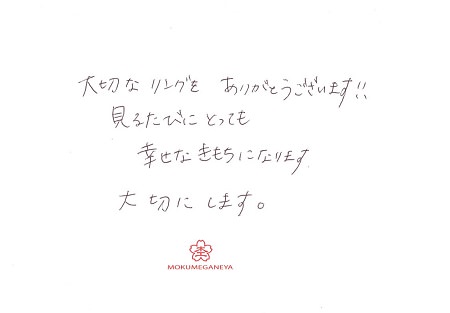 大切な リングを ありがとうございます!!
見るたびに とっても
幸せなきもちになります
大切に します。
MOKUMEGANEYA